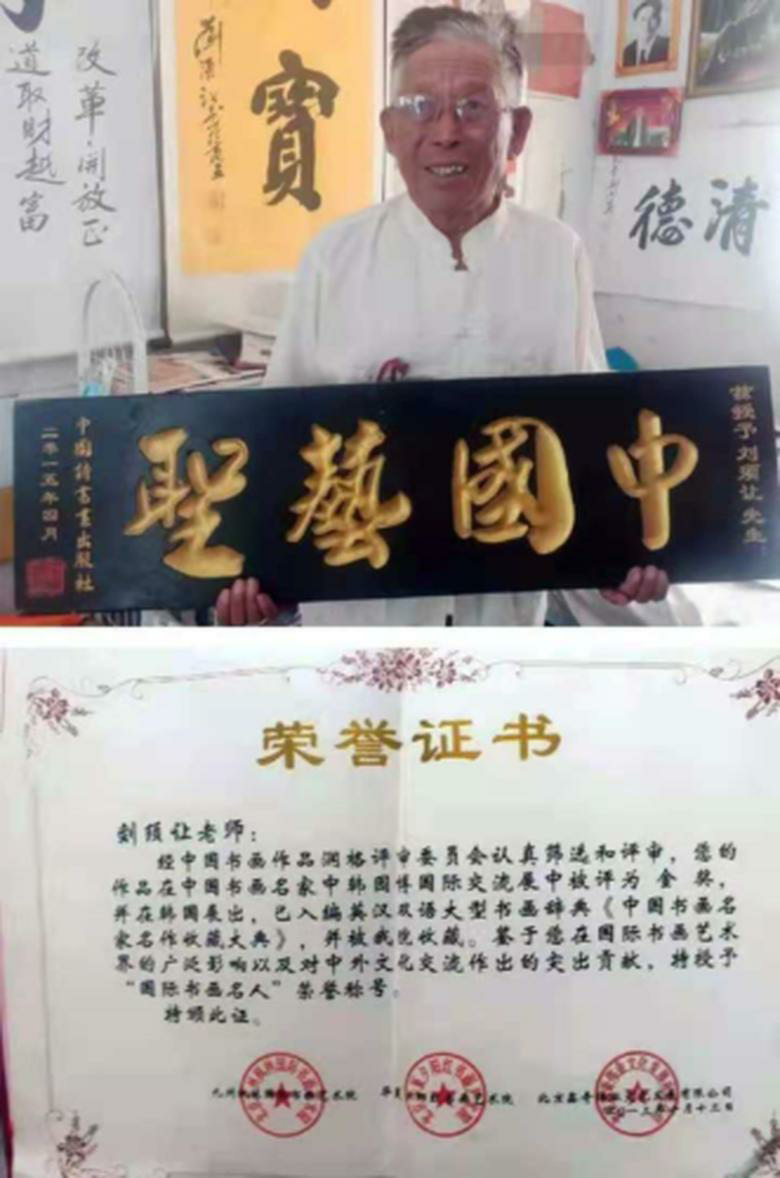 改革开放正
道取财越富
寶
清德
兹授予 刘须让 先生
中國藝聖
中国诗书画出版社
二零一五年四月
荣誉证书
刘须让老师：
经中国书画作品润格评审委员会认真筛选和评审，您的
作品在中国书画名家中韩园博国际交流展中被评为 金 奖，
并在韩国展出，已入编英汉双语大型书画辞典《中国书画名
家名作收藏大典》，并被我院收藏。鉴于您在国际书画艺术
界的广泛影响以及对中外文化交流作出的突出贡献，特授予
“国际书画名人”荣誉称号。
特颁此证。